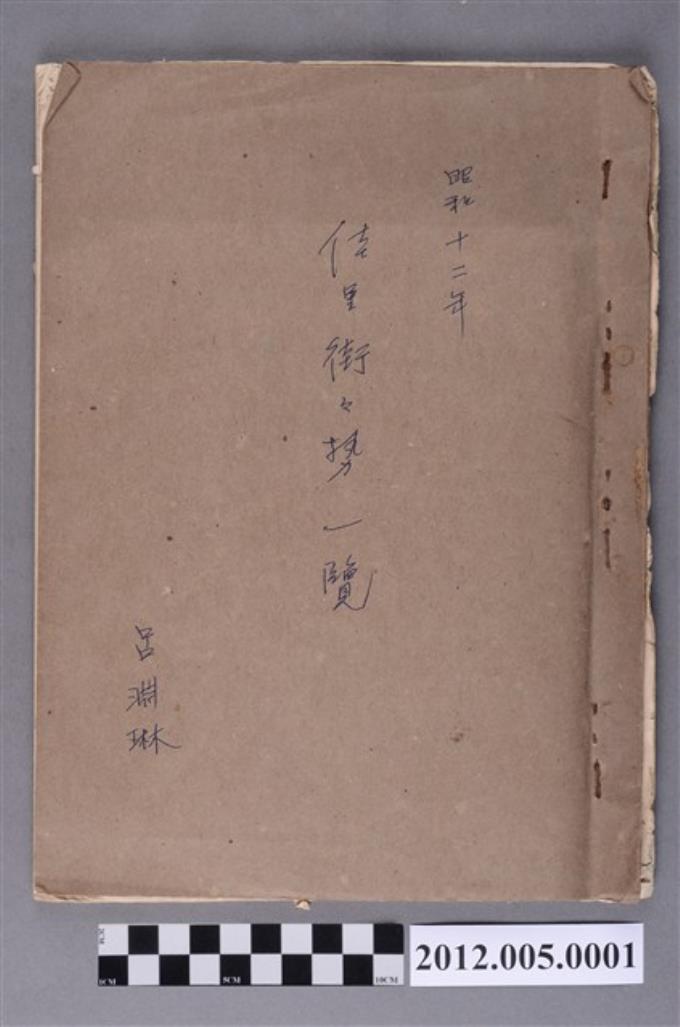 昭和十二年
佳里街々勢一覽
呂淵琳
2CM
1CM
5CM
10CM
2012.005.0001